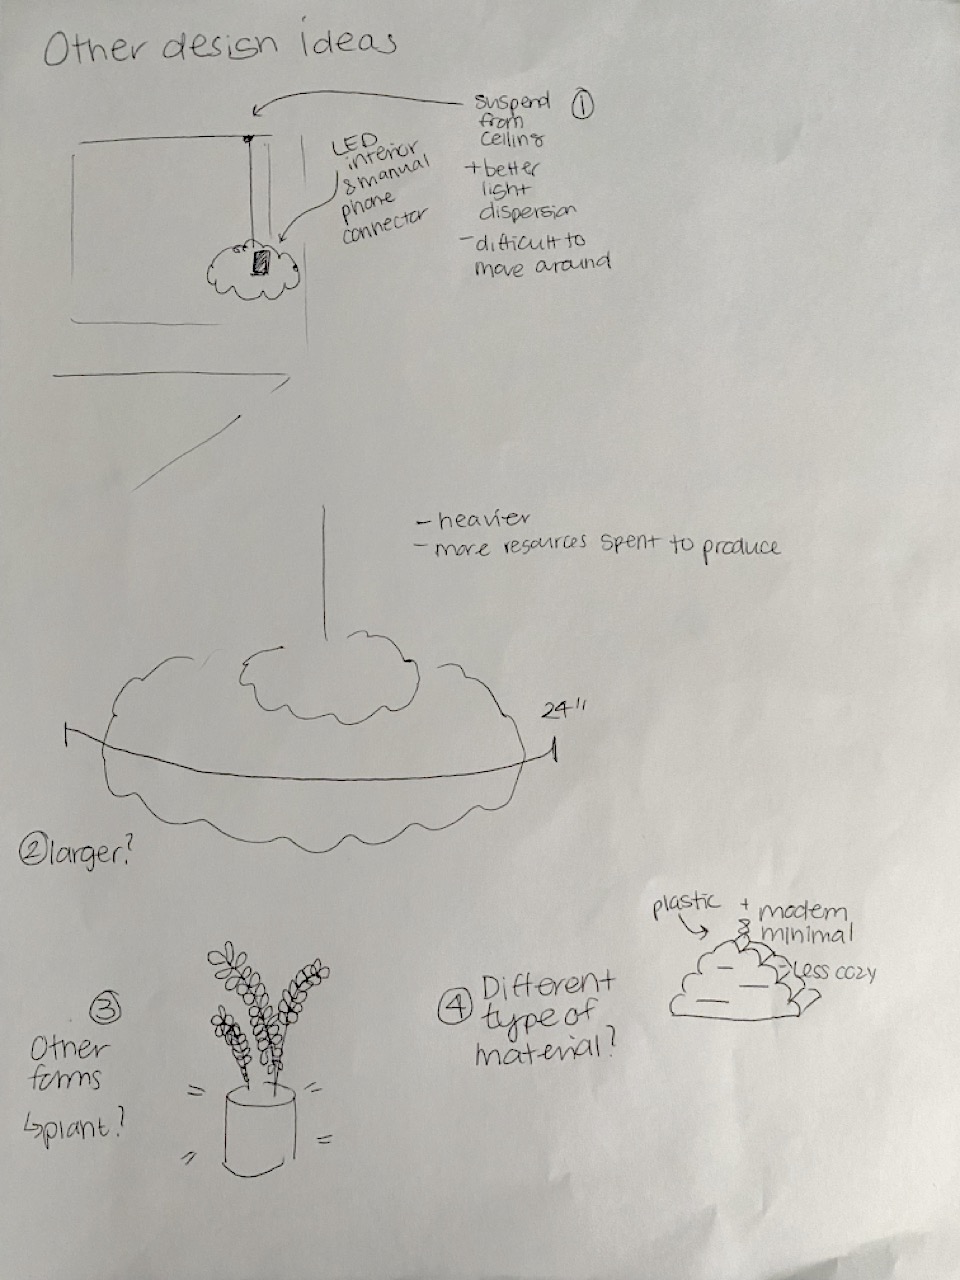 Other design ideas
suspend ①
from
ceiling
+ better
light
dispersion
- difficult to
move around
LED
interior
& manual
phone
connector
- heavier
- more resources spent to produce
24"
② larger?
③
Other
forms
↳ plant?
④ Different
type of
material?
plastic
+ modern
minimal
- Less cozy